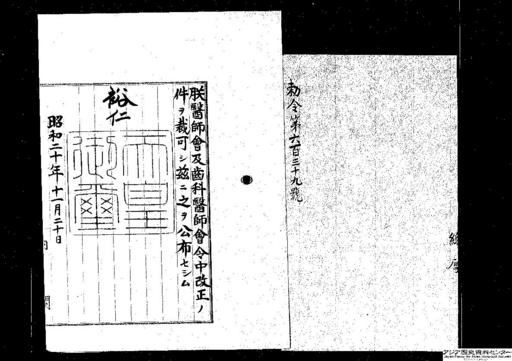 勅令第六百三十九號
朕醫師會及齒科醫師會令中改正ノ
件ヲ裁可シ茲ニ之ヲ公布セシム
裕仁
天皇
御璽
昭和二十年十一月二十日
アジア歴史資料センター